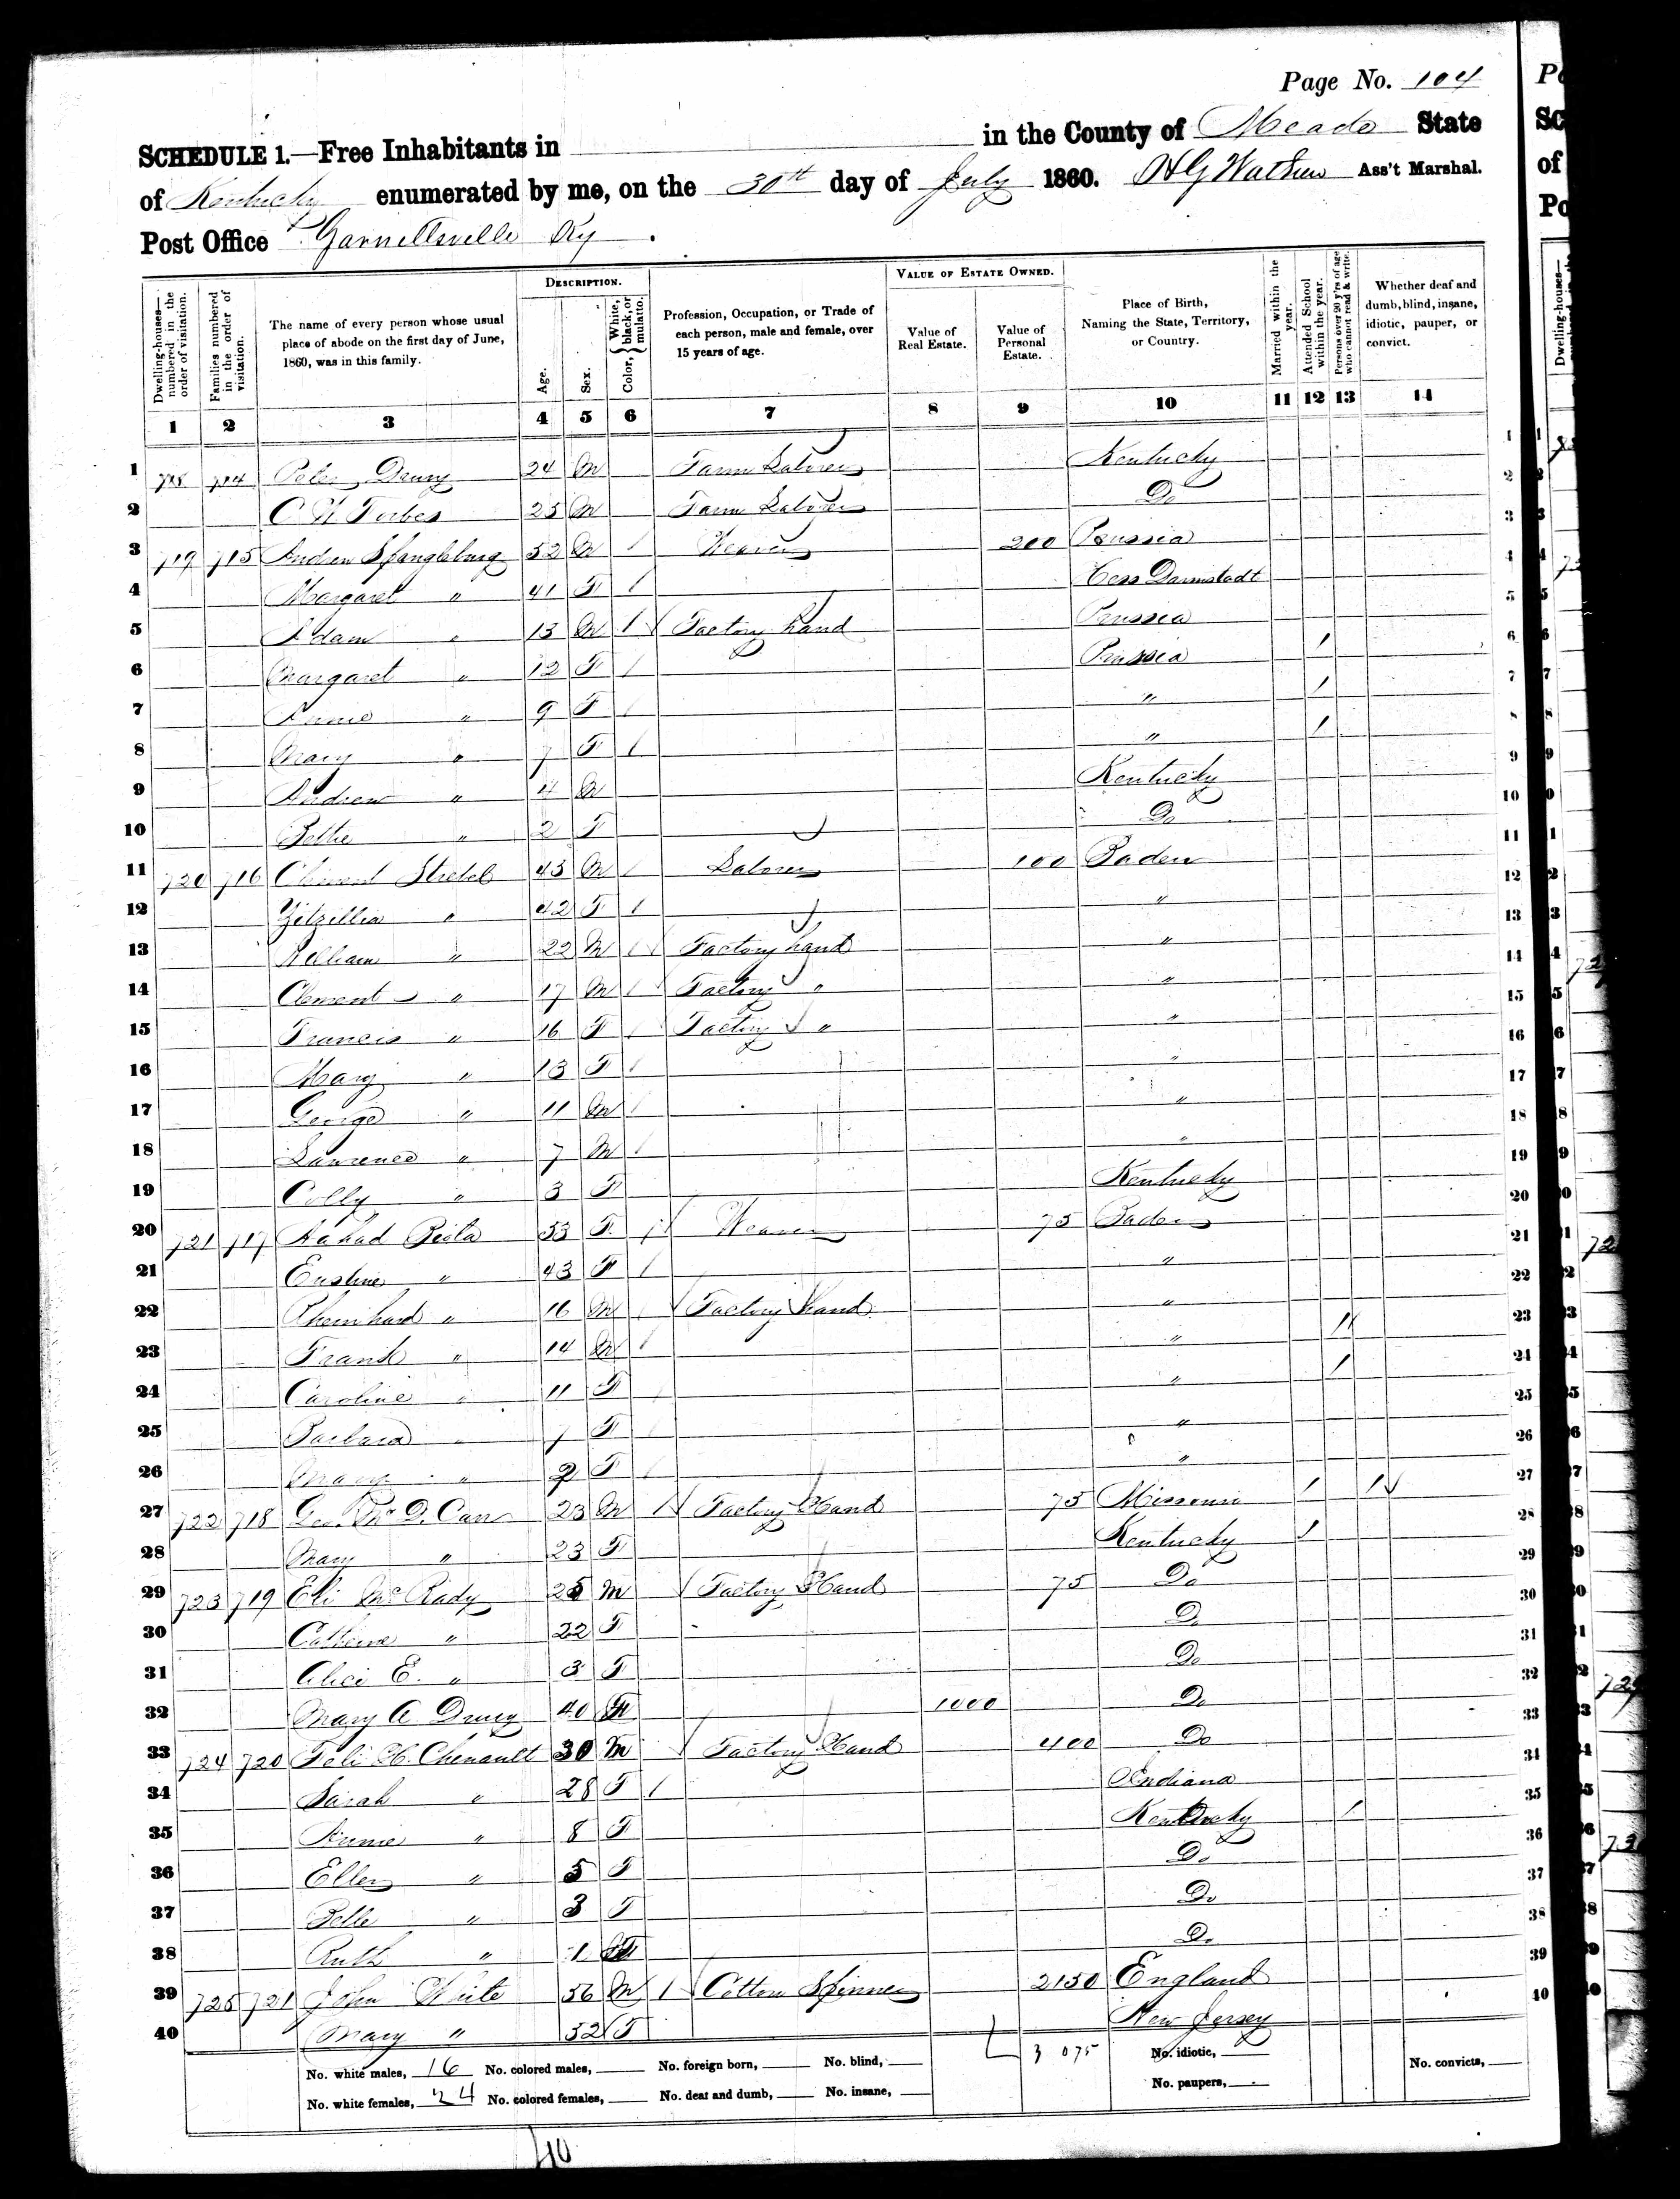 Page No. 104
SCHEDULE 1.—Free Inhabitants in in the County of Meade State
of Kentucky enumerated by me, on the 30th day of July 1860. Ass't Marshal.
Post Office Garnettsville Ky.
DESCRIPTION. VALUE OF ESTATE OWNED.
Dwelling-houses—numbered in the order of visitation. Families numbered in the order of visitation. The name of every person whose usual place of abode on the first day of June, 1860, was in this family. Age. Sex. Color, White, black, or mulatto. Profession, Occupation, or Trade of each person, male and female, over 15 years of age. Value of Real Estate. Value of Personal Estate. Place of Birth, Naming the State, Territory, or Country. Married within the year. Attended School within the year. Persons over 20 y'rs of age who cannot read & write. Whether deaf and dumb, blind, insane, idiotic, pauper, or convict.
1 2 3 4 5 6 7 8 9 10 11 12 13 14
1 714 Peter 24 M Farm Laborer Kentucky 1
2 C H Forbes 25 M Farm Laborer Do 2
3 719 715 Andrew Spangleburg 52 M 1 Weaver 200 Prussia 3
4 Margaret " 41 F 1 Hess Darmstadt 4
5 Adam " 13 M 1 Factory hand Prussia 5
6 Margaret " 12 F 1 Prussia 1 6
7 Annie " 9 F 1 " 1 7
8 Mary " 7 F 1 " 1 8
9 Andrew " 4 M Kentucky 9
10 " 2 F Do 10
11 720 716 Clement 43 M 1 Laborer 100 Baden 11
12 " 42 F 1 " 12
13 William " 22 M 1 Factory hand " 13
14 Clement " 17 M 1 Factory " " 14
15 Francis " 16 F 1 Factory " " 15
16 Mary " 13 F 1 " 16
17 George " 11 M 1 " 17
18 Lawrence " 7 M 1 " 18
19 Colly " 3 F Kentucky 19
20 721 717 53 F 1 Weaver 75 Baden 20
21 " 43 F 1 " 21
22 Rheinhard " 16 M 1 Factory hand " 22
23 Frank " 14 M 1 " 1 23
24 Caroline " 11 F 1 " 1 24
25 Barbara " 7 F 1 " 25
26 Mary " 2 F 1 " 26
27 722 718 Geo. Mc D. Carr 23 M 1 Factory Hand 75 Missouri 1 1 27
28 Mary " 23 F Kentucky 1 28
29 723 719 Eli Mc Rady 25 M Factory Hand 75 Do 29
30 Catherine " 22 F Do 30
31 Alice E. " 3 F Do 31
32 Mary A. Drury 40 F 1000 Do 32
33 724 720 H. Chenault 30 M Factory Hand 400 Do 33
34 Sarah " 28 F 1 Indiana 34
35 Annie " 8 F Kentucky 1 35
36 Ellen " 5 F Do 36
37 Belle " 3 F Do 37
38 Ruth " 1 F Do 38
39 725 721 John White 56 M 1 Cotton Spinner 2150 England 39
40 Mary " 52 F New Jersey 40
No. white males, 16 No. colored males, No. foreign born, No. blind, 3 075 No. idiotic, No. convicts,
No. white females, 24 No. colored females, No. deaf and dumb, No. insane, No. paupers,
40